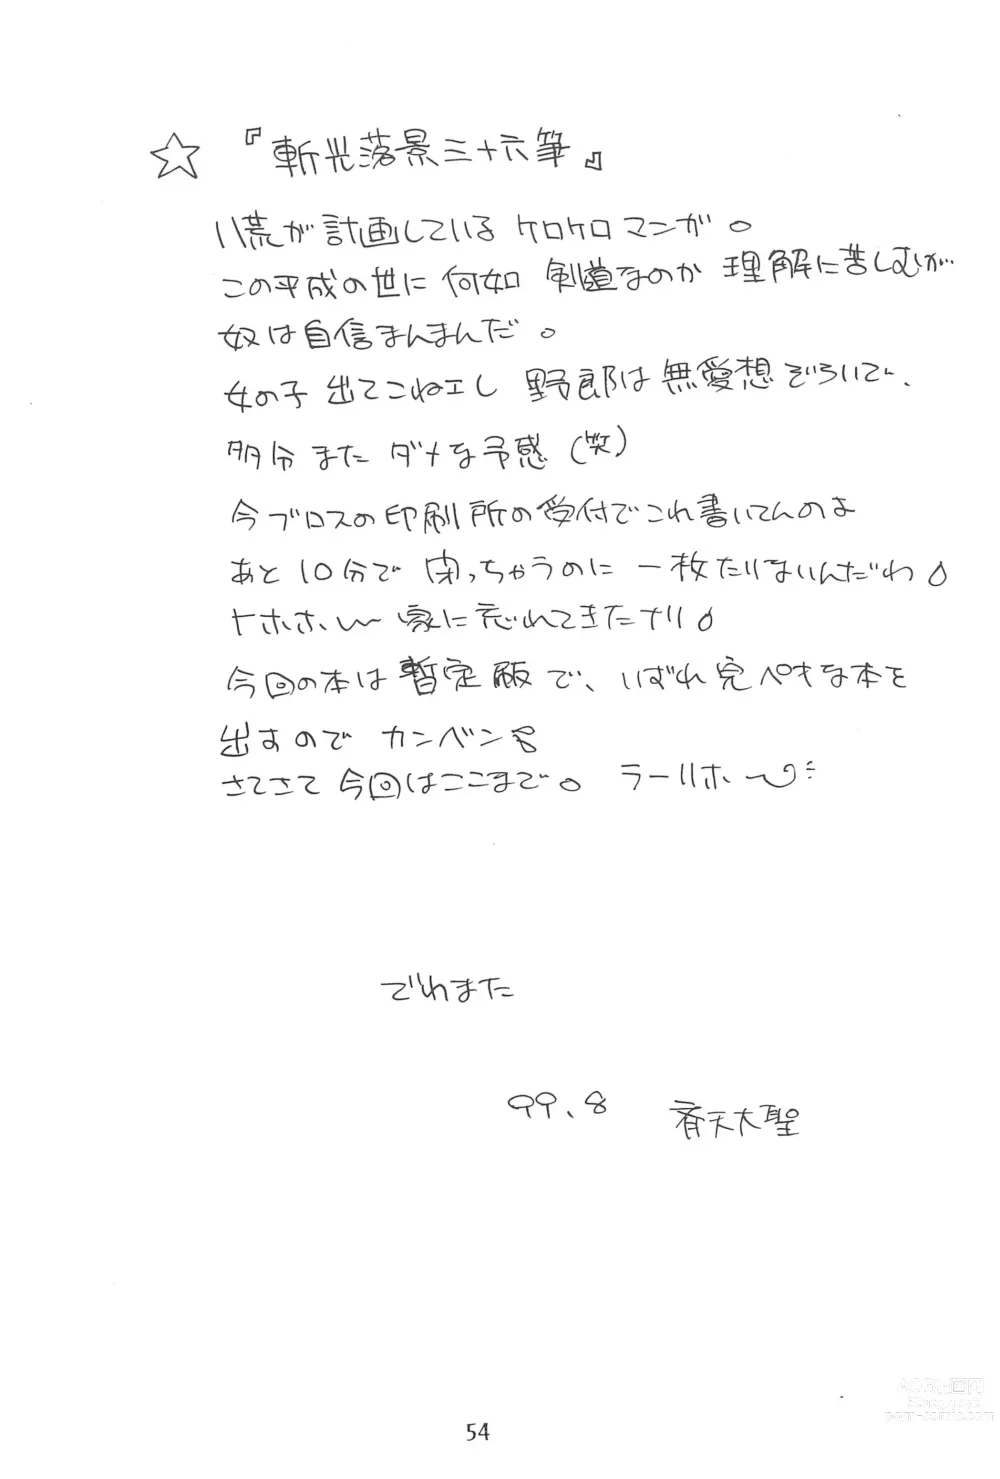 ☆ 『斬光落景三十六筆』
八荒が計画している ケロケロマンガ。
この平成の世に 何如 剣道なのか 理解に苦しむが…
奴は自信まんまんだ。
女の子 出てこねェし 野郎は無愛想ぞろいで、
多分 また ダメな予感 (笑)
今ブロスの印刷所の受付でこれ書いてんのよ
あと10分で 閉っちゃうのに 一枚たりないんだわ
トホホ、〜 家に忘れてきたナリ
今回の本は 暫定版で、いずれ完ペキな本を
出すので カンベン
さてさて 今回はここまで。 ラーリホー
でわまた
99.8 斉天大聖
54